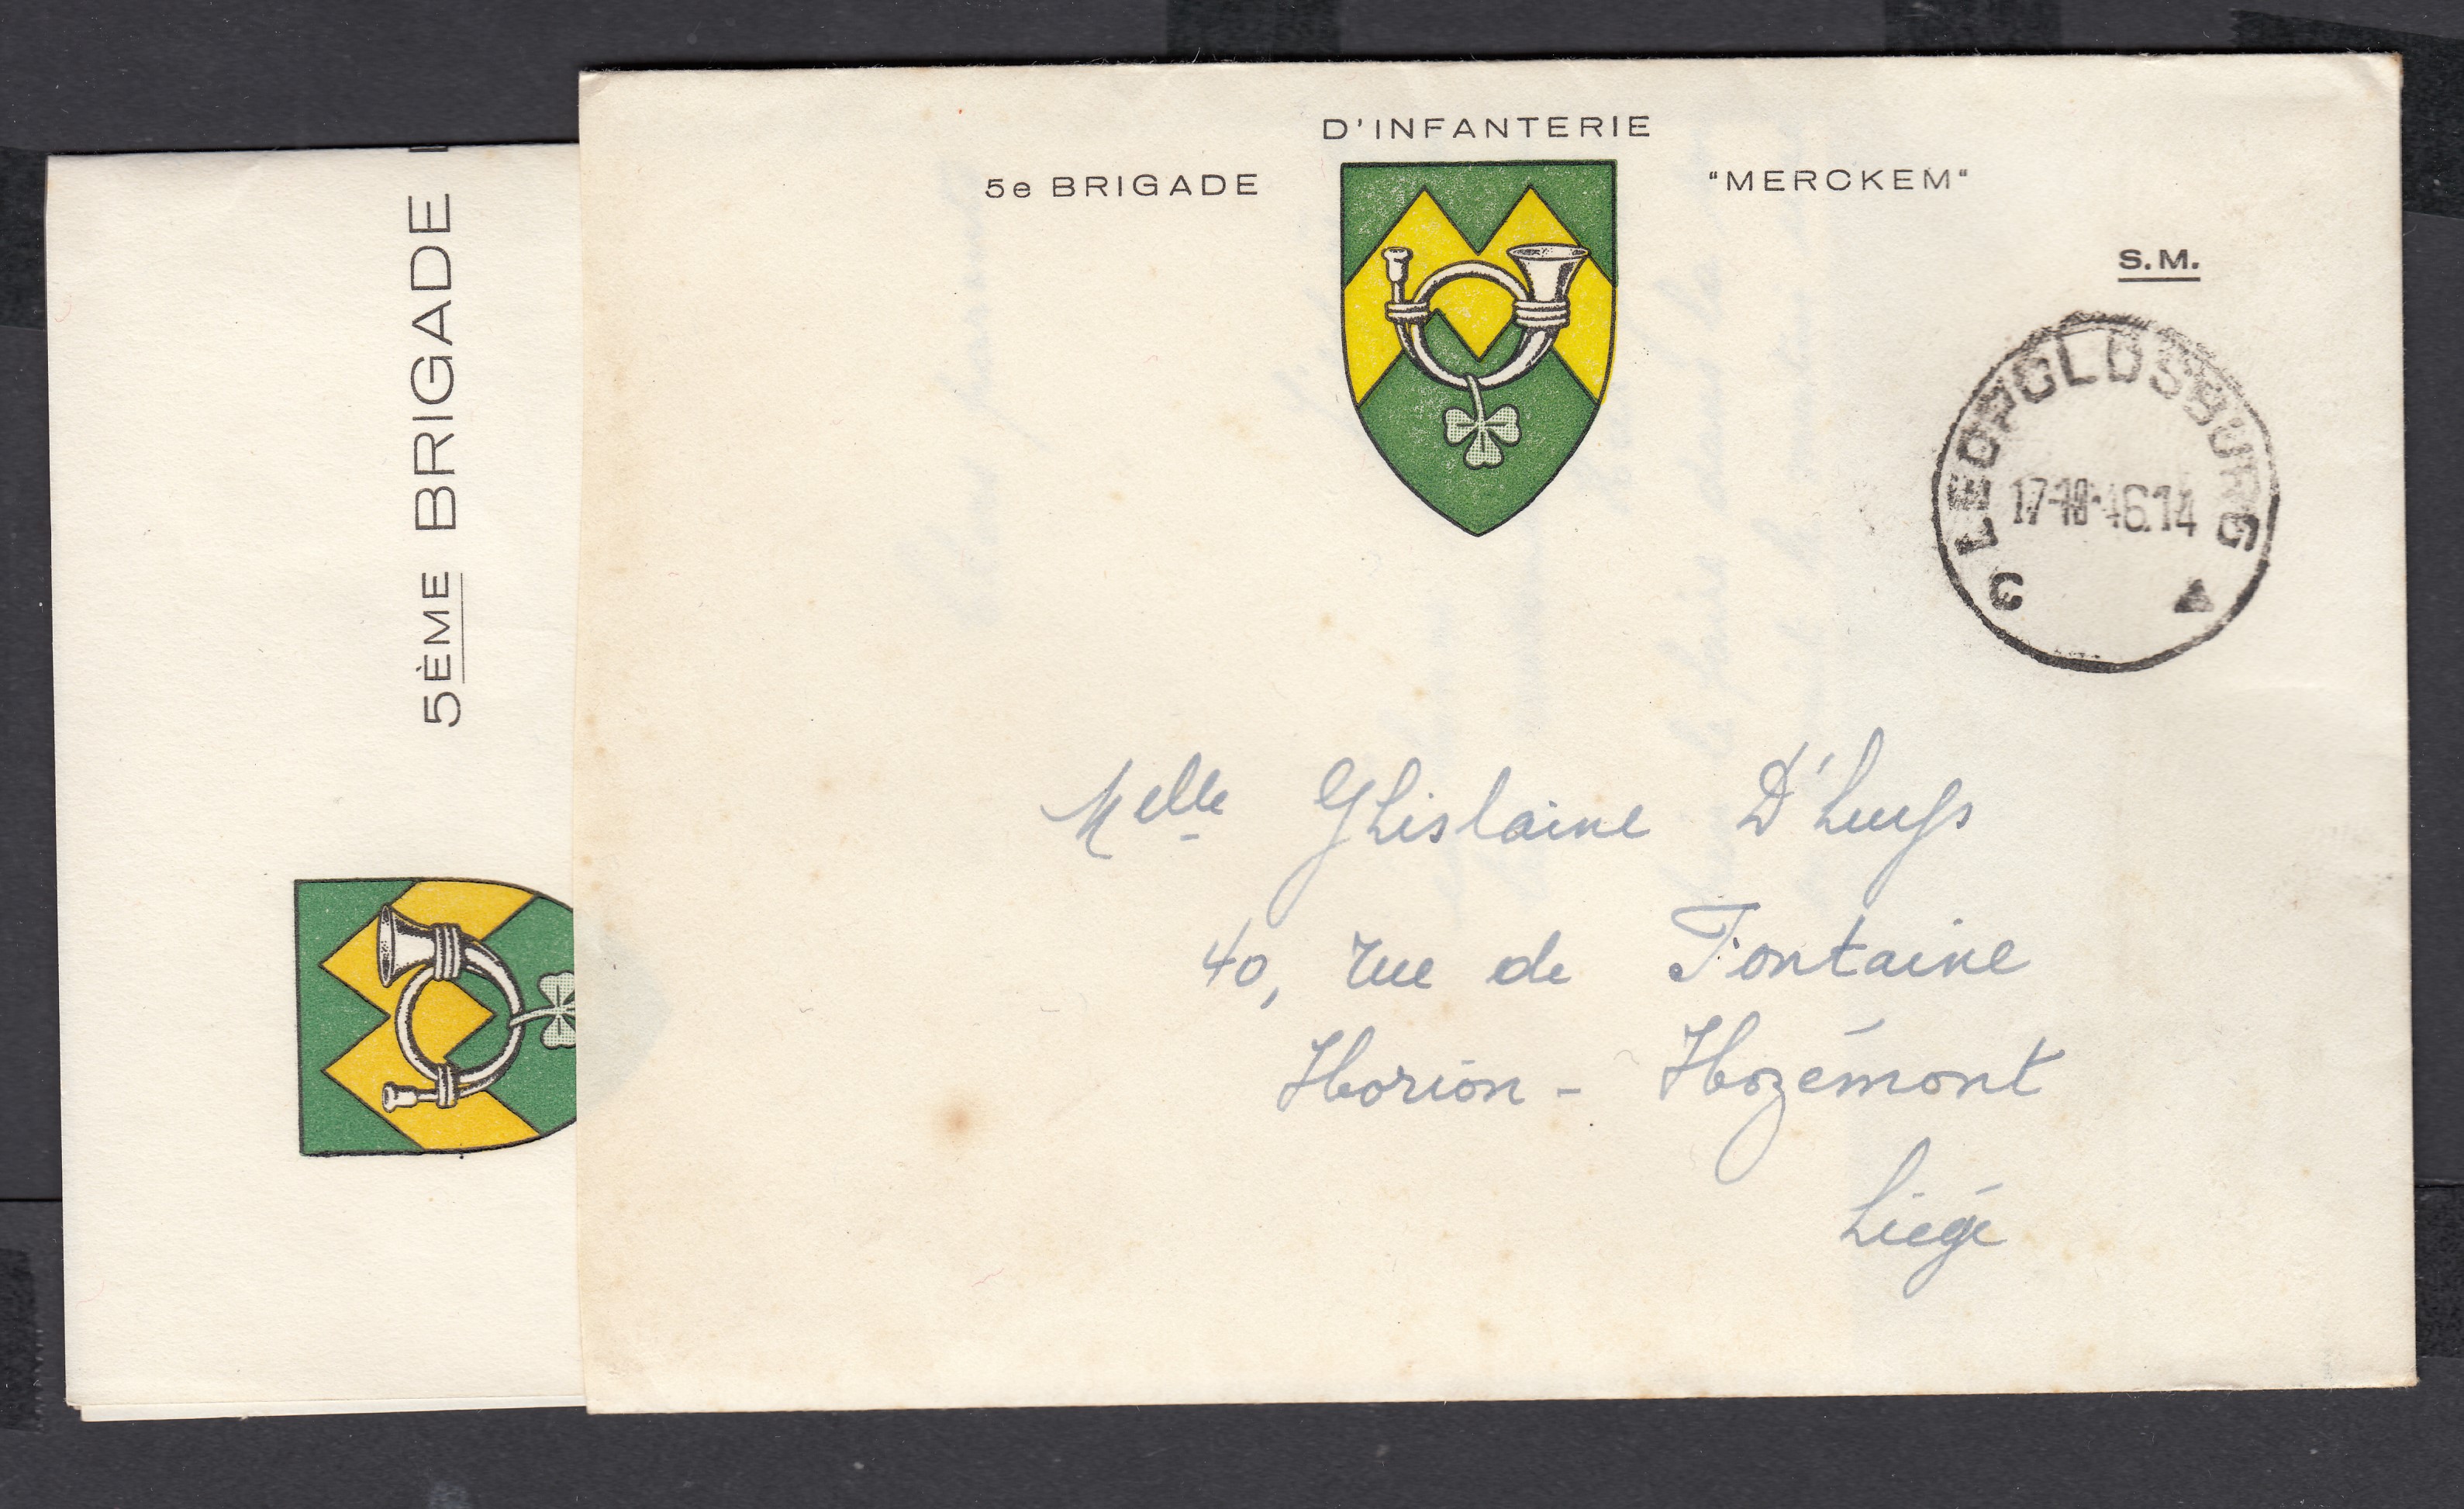 5ÈME BRIGADE
D'INFANTERIE
5e BRIGADE "MERCKEM"
S.M.
LEOPOLDSBURG
17-10-46.14
C
Melle Ghislaine D'Huys
40, rue de Fontaine
Horion - Hozémont
Liége